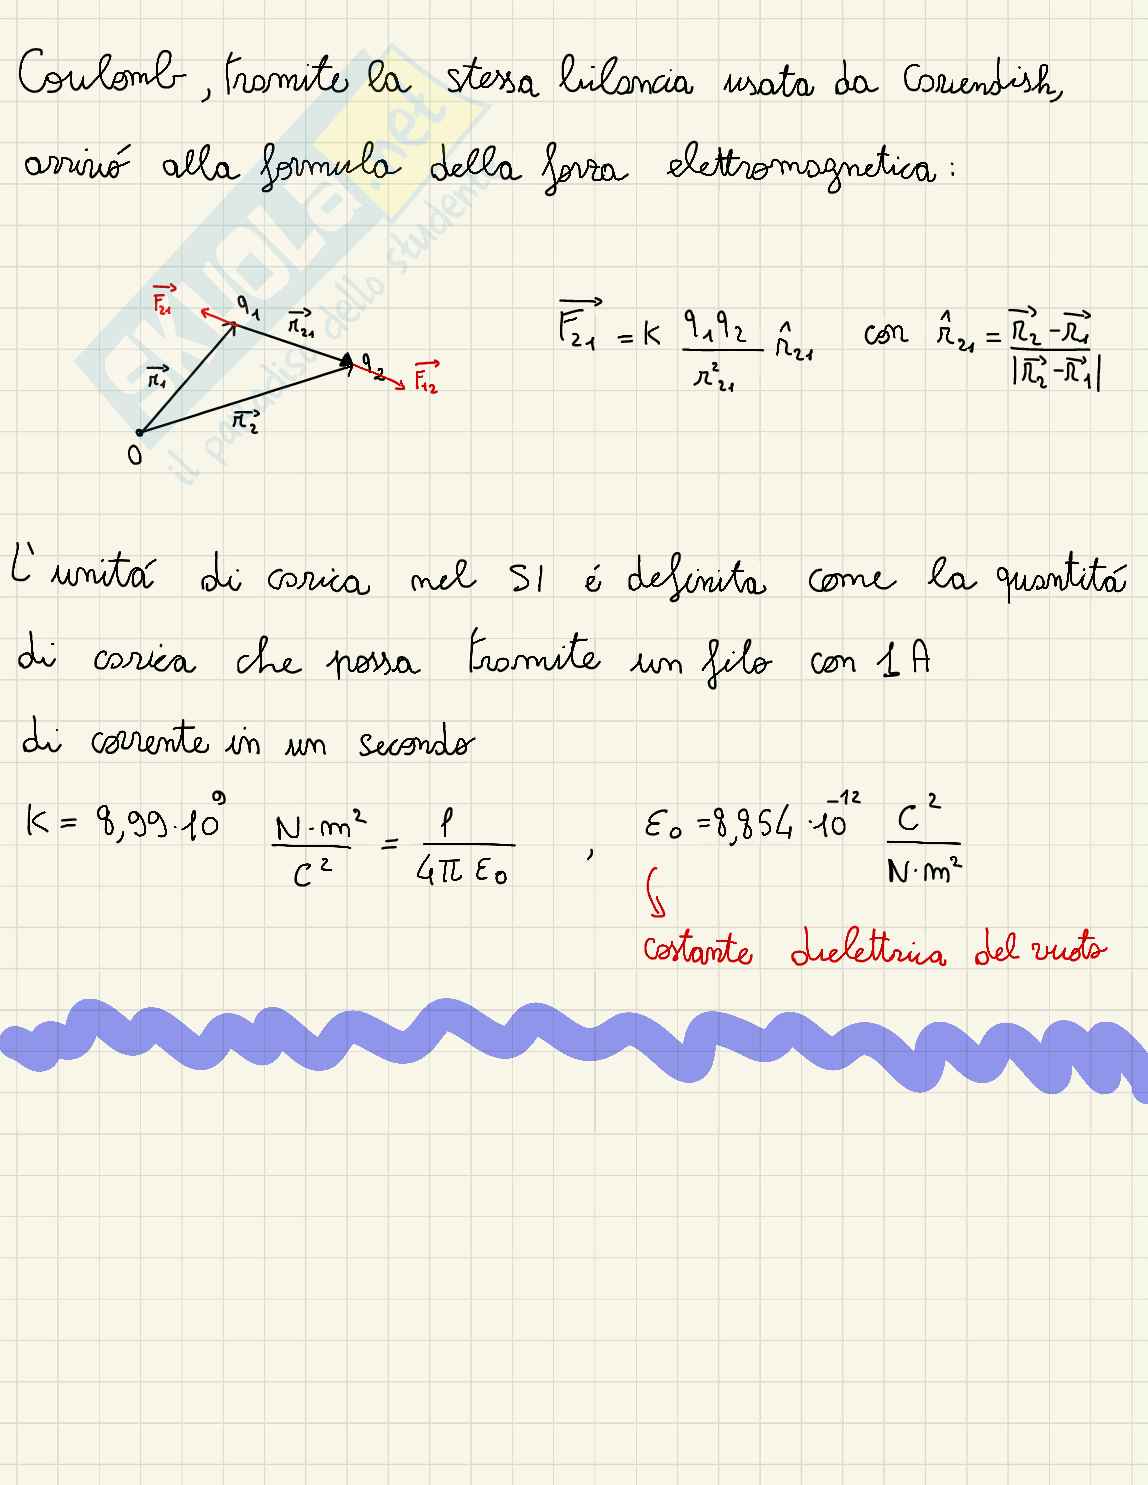 Coulomb, tramite la stessa bilancia usata da Cavendish,
arrivó alla formula della forza elettromagnetica:
SKUOLA.net
il paradiso dello studente
F₂₁ q₁ r₂₁ q₂ F₁₂ r₁ r₂ O
F₂₁ = K q₁q₂ / r²₂₁ r̂₂₁ con r̂₂₁ = r₂ - r₁ / |r₂ - r₁|
L'unitá di carica nel SI é definita come la quantitá
di carica che passa tramite un filo con 1 A
di corrente in un secondo
K = 8,99·10⁹ N·m²/C² = 1/4π ε₀ , ε₀ = 8,854·10⁻¹² C²/N·m²
costante dielettrica del vuoto